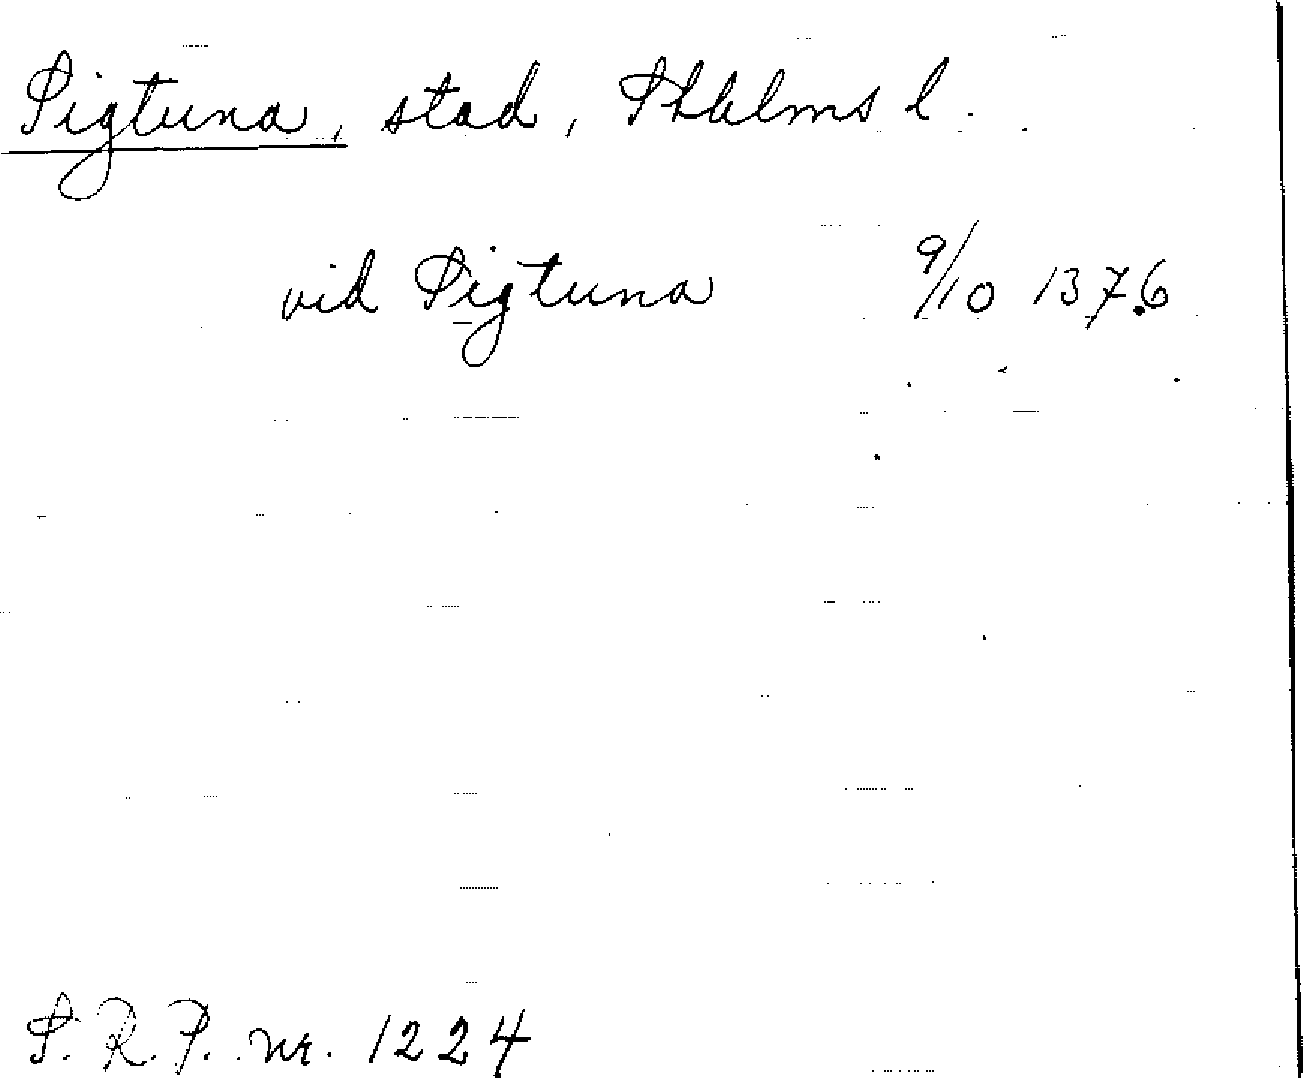 Sigtuna, stad, Sthlms l.
vid Sigtuna 9/10 1376
S.R.P. nr. 1224